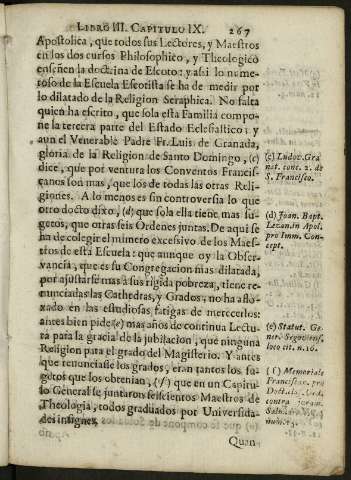 LIBRO III. CAPITULO IX. 267
Apostolica, que todos sus Lectores, y Maestros
en los dos cursos Philosophico, y Theologico
enseñen la doctrina de Escoto: y assi lo nume-
roso de la Escuela Escotista se ha de medir por
lo dilatado de la Religion Seraphica. No falta
quien ha escrito, que sola esta Familia compo-
ne la tercera parte del Estado Eclesiastico: y
aun el Venerable Padre Fr. Luis de Granada,
gloria de la Religion de Santo Domingo, (c)
dice, que por ventura los Conventos Francis-
canos son mas, que los de todas las otras Reli-
giones. A lo menos es sin controversia lo que
otro docto dixo, (d) que sola ella tiene mas su-
getos, que otras seis Ordenes juntas. De aqui se
ha de colegir el numero excessivo de los Maes-
tros de esta Escuela: que aunque oy la Obser-
vancia, que es su Congregacion mas dilatada,
por ajustarse mas à su rigida pobreza, tiene re-
nunciadas las Cathedras, y Grados, no ha aflo-
xado en las estudiosas fatigas de merecerlos:
antes bien pide (e) mas años de continua Lectu-
ra para la gracia de la jubilacion, que ninguna
Religion para el grado del Magisterio. Y antes
que renunciasse los grados, eran tantos los su-
getos que los obtenian, (f) que en un Capitu-
lo General se juntaron seiscientos Maestros de
Theologia, todos graduados por Universida-
des insignes.
Quan-
(c) Ludov. Gra
nat. conc. 2. de
S. Francisco.
(d) Joan. Bapt.
Lezan. in Apol.
pro Imm. Con-
cept.
(e) Statut. Ge-
ner. Segoviens.
loco cit. n. 16.
(f) Memoriale
Franciscan. pro
Doct.
contra juram.